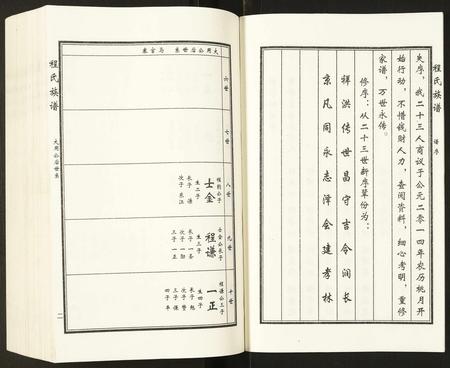 程氏族谱
谱序
失序，我二十三人商议于公元二零一四年农历桃月开
始行动，不惜钱财人力，查阅资料，细心考明，重修
家谱，万世永传。
修序：从二十三世新序辈份为：
祥洪传世昌守吉令润长
京凡同永志泽会建孝林
大用公后世系 马官寨
六世
七世
八世
程钧公子
士金
生二子
长子 谦
次子
九世
士金公长子
程谦
生三子
长子 一泰
次子 一阳
三子 一正
十世
程谦公三子
一正
生四子
长子 魁
次子 赞
三子 保
四子 平
程氏族谱
大用公后世系
二